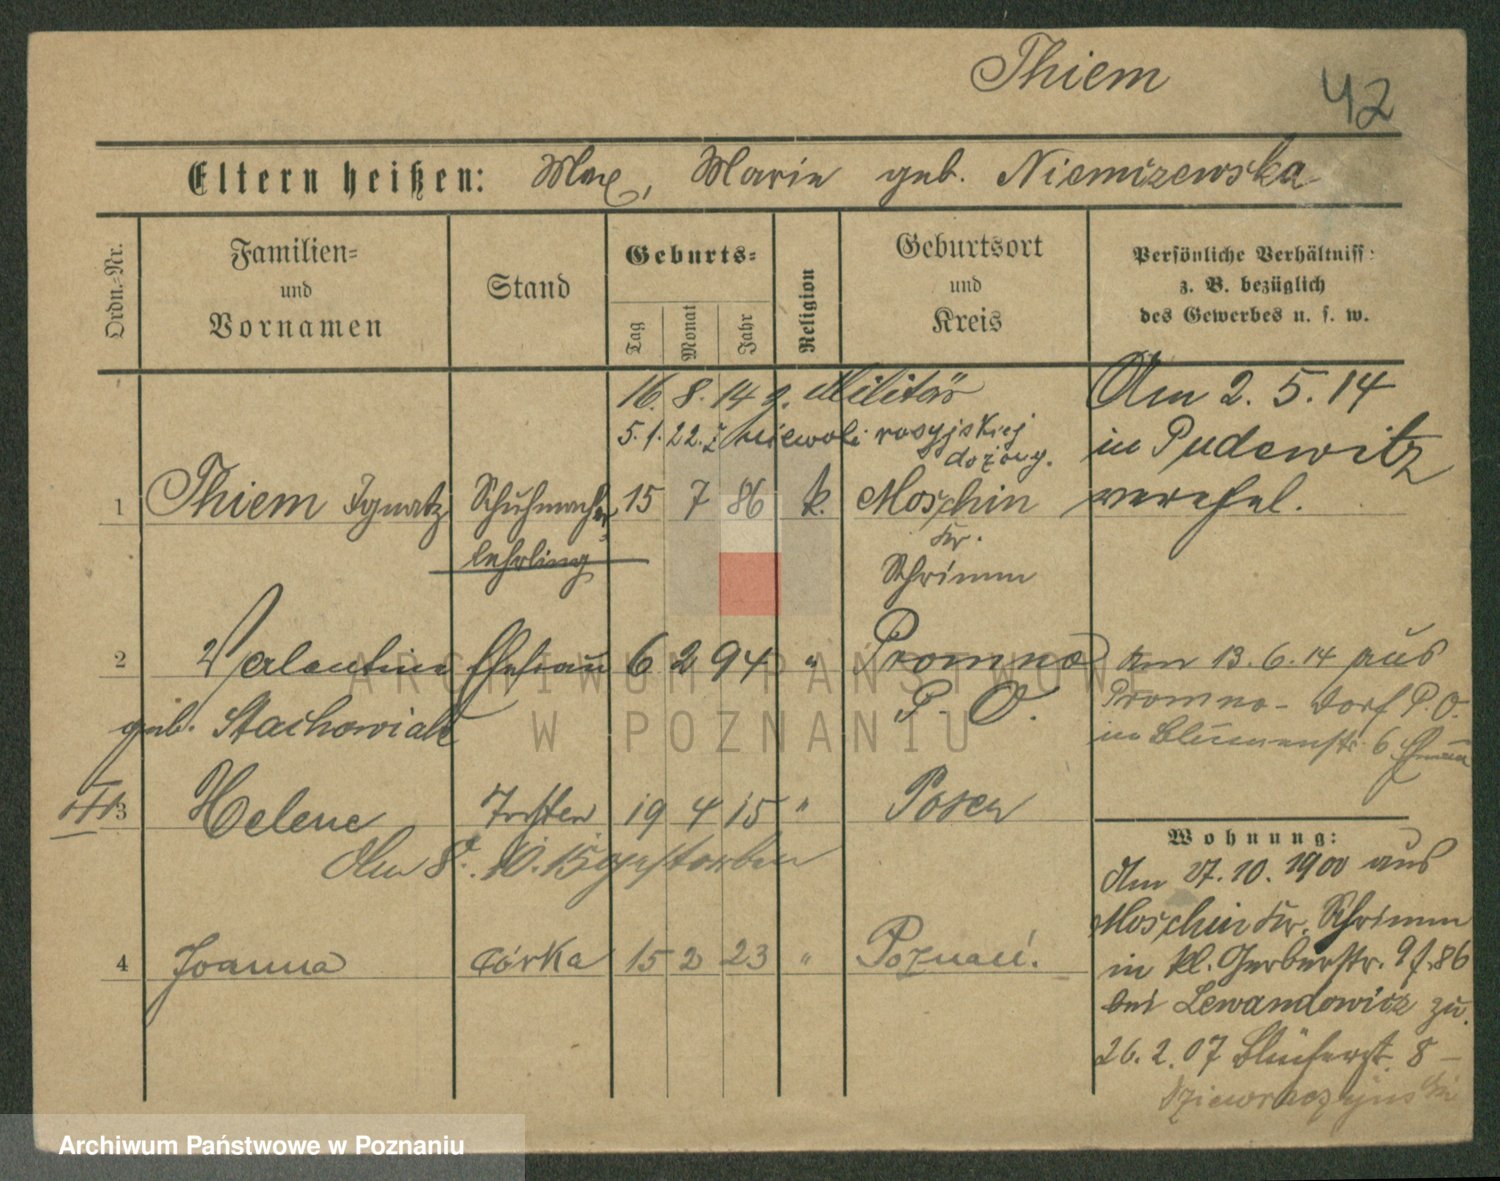 Thiem
42
Eltern heißen: Max, Marie geb. Niemizewska
Ordn.-Nr.
Familien-
und
Vornamen
Stand
Geburts-
Tag
Monat
Jahr
Religion
Geburtsort
und
Kreis
Persönliche Verhältniss:
z. B. bezüglich
des Gewerbes u. s. w.
16. 8. 14 z. Militär
5. 1. 22. z niewoli rosyjskiej
Am 2. 5. 14
in Pudewitz
verehel.
1 Thiem Ignatz Schuhmacher 15 7 86 k. Moschin
lehrling
Kr.
Schrimm
2 Valentine Ehefrau 6 2 94 " Promno
geb. Stachowiak
P. O.
Am 13. 6. 14 aus
Promno-Dorf P. O.
in Blumenstr. 6
3 Helene Tochter 19 4 15 " Posen
Am 8. 10. 15 gestorben
4 Joanna córka 15 2 23 " Poznań.
Wohnung:
Am 27. 10. 1900 aus
Moschin Kr. Schrimm
in kl. Gerberstr. 9
bei Lewandowicz zu.
26. 2. 07 Blücherst. 8 -
ARCHIWUM PAŃSTWOWE
W POZNANIU
Archiwum Państwowe w Poznaniu